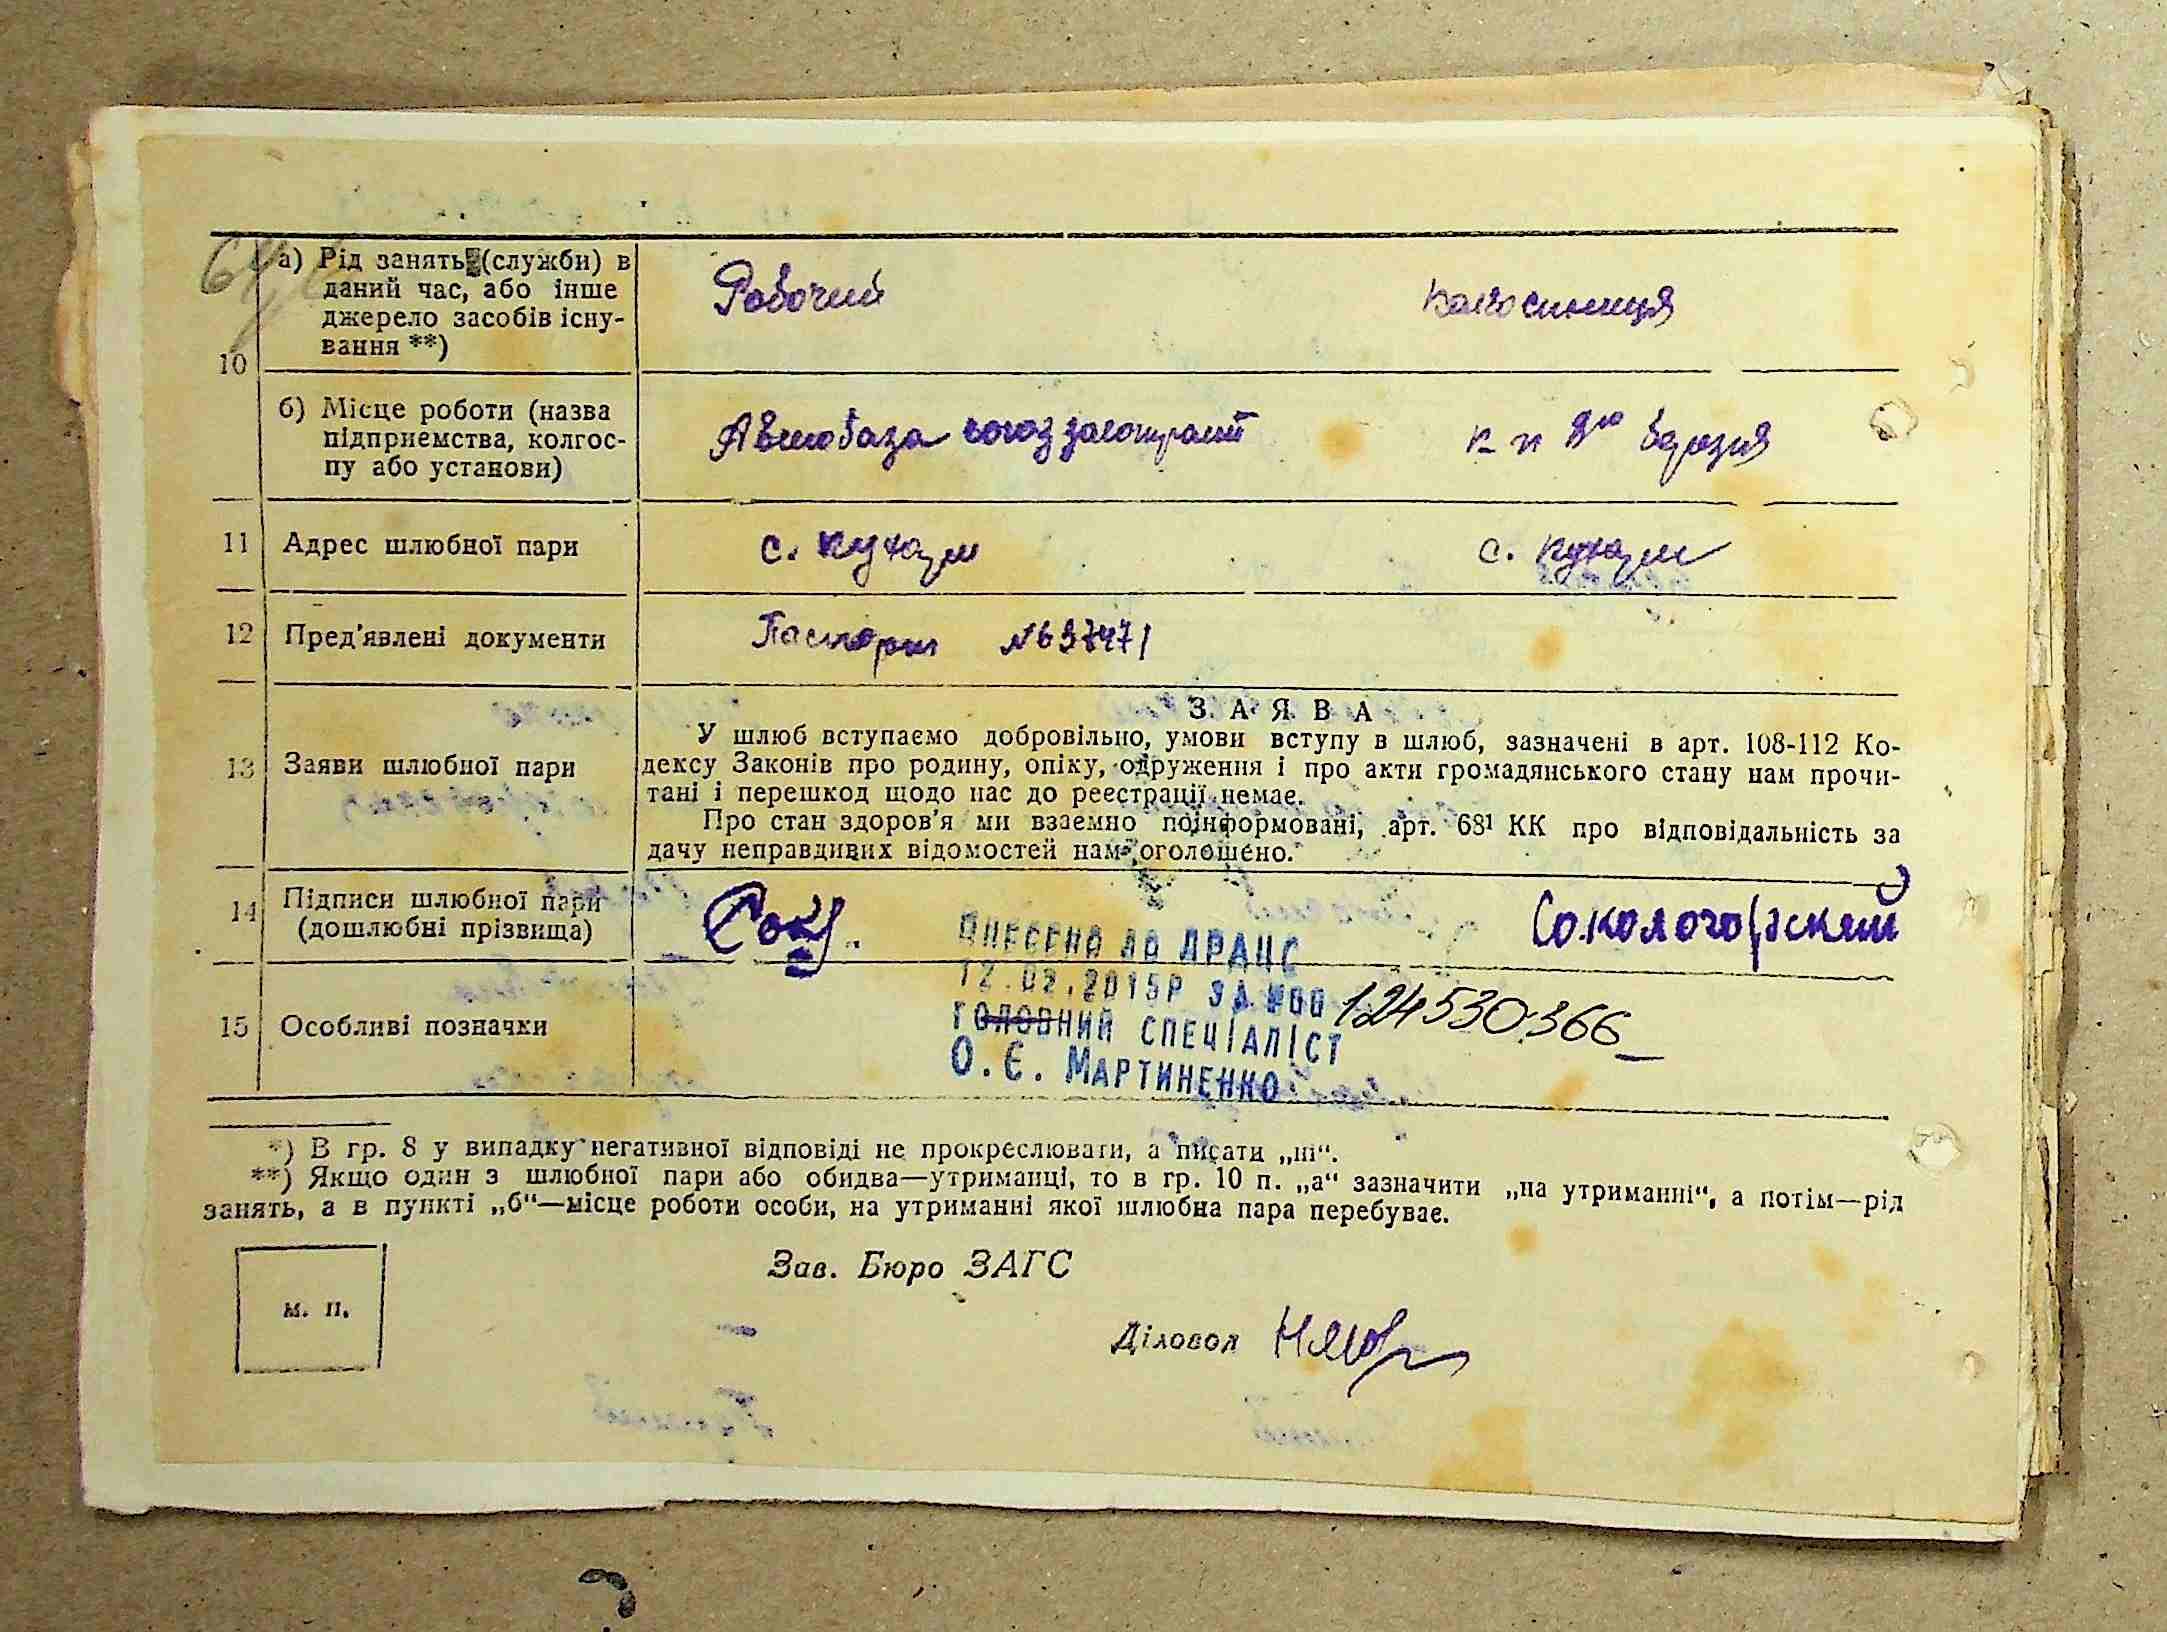 10 а) Рід занять (служби) в
даний час, або інше
джерело засобів існу-
вання **)
Робочий
б) Місце роботи (назва
підприємства, колгос-
пу або установи)
Автобаза
к п 8го березня
11 Адрес шлюбної пари
с.
с.
12 Пред'явлені документи
Паспорт №637471
13 Заяви шлюбної пари
ЗАЯВА
У шлюб вступаємо добровільно, умови вступу в шлюб, зазначені в арт. 108-112 Ко-
дексу Законів про родину, опіку, одруження і про акти громадянського стану нам прочи-
тані і перешкод щодо нас до реєстрації немає.
Про стан здоров'я ми взаємно поінформовані, арт. 68¹ КК про відповідальність за
дачу неправдивих відомостей нам оголошено.
14 Підписи шлюбної пари
(дошлюбні прізвища)
15 Особливі позначки
ВНЕСЕНО ДО ДРАЦС
12.02.2015Р ЗА №00124530366
ГОЛОВНИЙ СПЕЦІАЛІСТ
О.Є. МАРТИНЕНКО
*) В гр. 8 у випадку негативної відповіді не прокреслювати, а писати „ні“.
**) Якщо один з шлюбної пари або обидва—утриманці, то в гр. 10 п. „а“ зазначити „на утриманні“, а потім—рід
занять, а в пункті „б“—місце роботи особи, на утриманні якої шлюбна пара перебуває.
м. п.
Зав. Бюро ЗАГС
Діловод